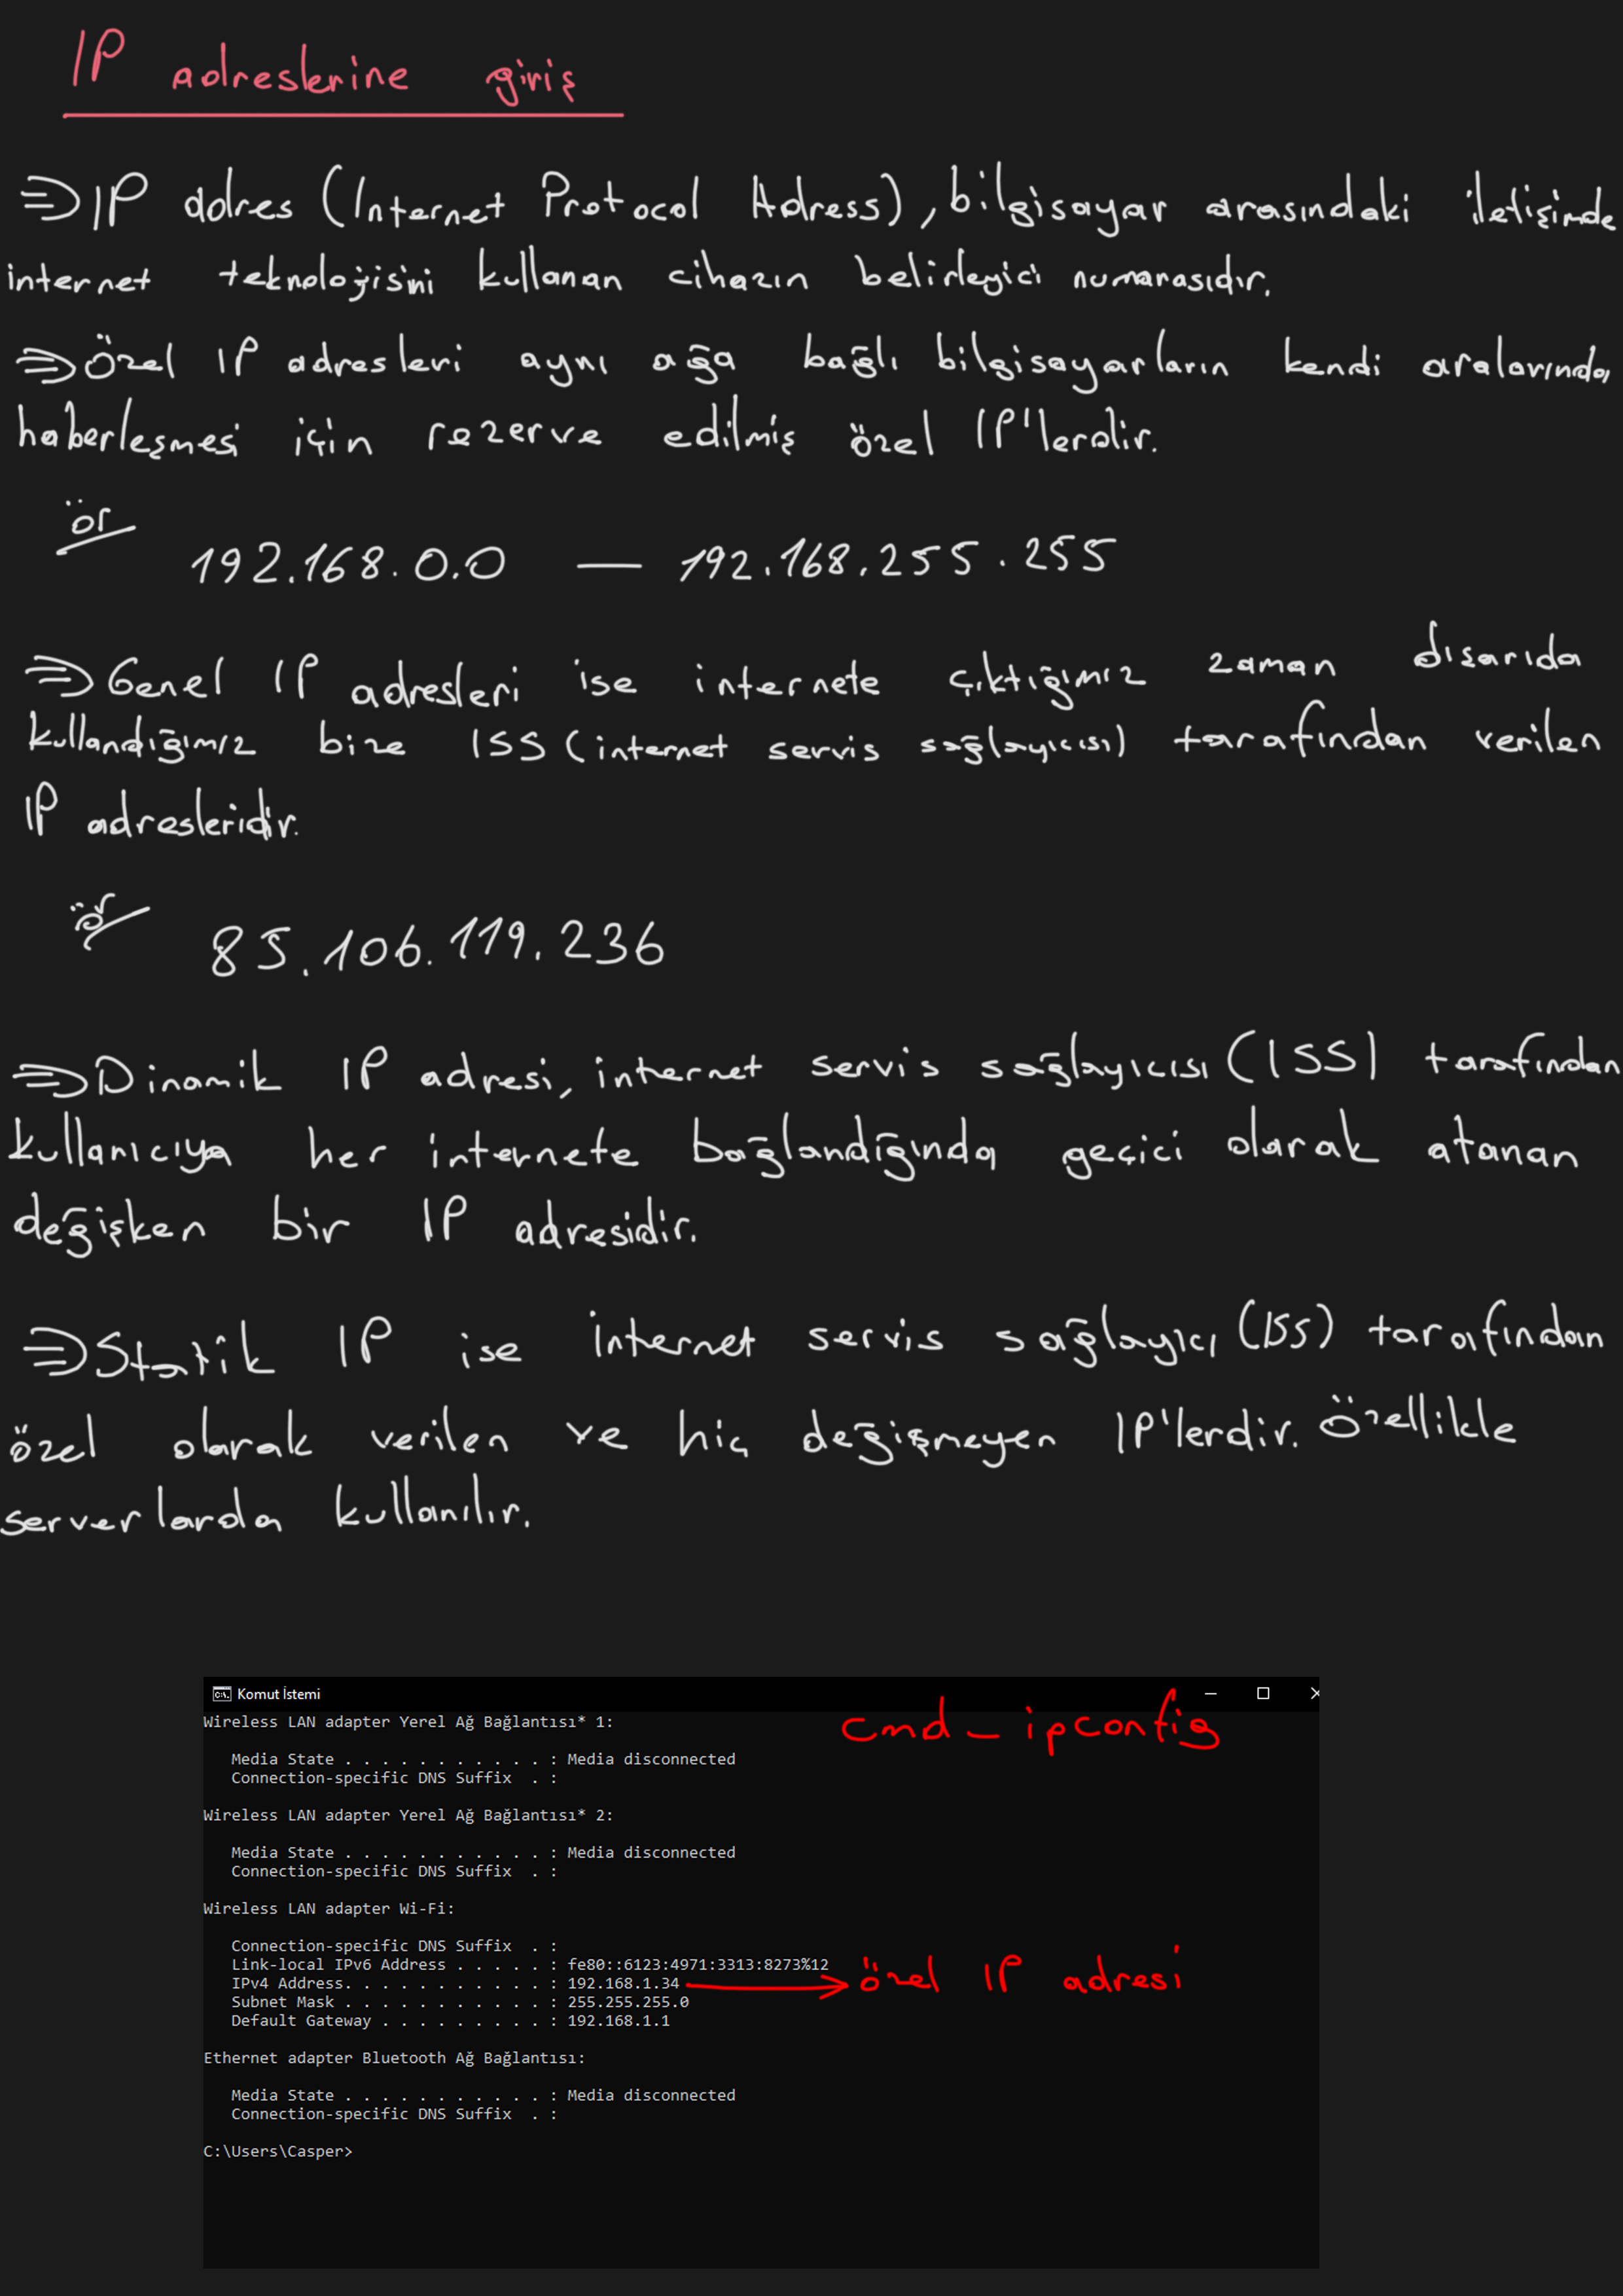 IP adreslerine giriş
⇒ IP adres (Internet Protocol Adress), bilgisayar arasındaki iletişimde
internet teknolojisini kullanan cihazın belirleyici numarasıdır.
⇒ Özel IP adresleri aynı ağa bağlı bilgisayarların kendi aralarında
haberleşmesi için rezerve edilmiş özel IP'lerdir.
ör
192.168.0.0 — 192.168.255.255
⇒ Genel IP adresleri ise internete çıktığımız zaman dışarıda
kullandığımız bize ISS (internet servis sağlayıcısı) tarafından verilen
IP adresleridir.
ör
85.106.119.236
⇒ Dinamik IP adresi, internet servis sağlayıcısı (ISS) tarafından
kullanıcıya her internete bağlandığında geçici olarak atanan
değişken bir IP adresidir.
⇒ Statik IP ise internet servis sağlayıcı (ISS) tarafından
özel olarak verilen ve hiç değişmeyen IP'lerdir. Özellikle
serverlarda kullanılır.
Komut İstemi
cmd - ipconfig
Wireless LAN adapter Yerel Ağ Bağlantısı* 1:
Media State . . . . . . . . . . . : Media disconnected
Connection-specific DNS Suffix  . :
Wireless LAN adapter Yerel Ağ Bağlantısı* 2:
Media State . . . . . . . . . . . : Media disconnected
Connection-specific DNS Suffix  . :
Wireless LAN adapter Wi-Fi:
Connection-specific DNS Suffix  . :
Link-local IPv6 Address . . . . . : fe80::6123:4971:3313:8273%12
IPv4 Address. . . . . . . . . . . : 192.168.1.34 → özel IP adresi
Subnet Mask . . . . . . . . . . . : 255.255.255.0
Default Gateway . . . . . . . . . : 192.168.1.1
Ethernet adapter Bluetooth Ağ Bağlantısı:
Media State . . . . . . . . . . . : Media disconnected
Connection-specific DNS Suffix  . :
C:\Users\Casper>